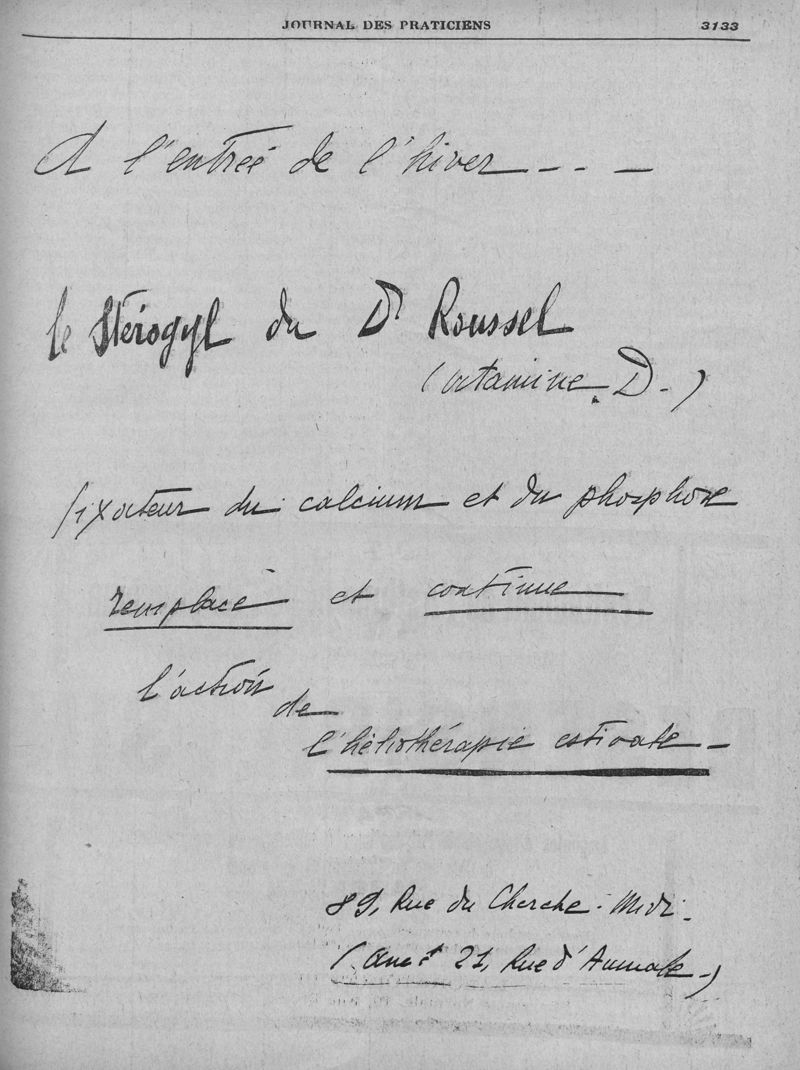 JOURNAL DES PRATICIENS 3133
A l'entrée de l'hiver - - - -
le Stérogyl du Dr Roussel
(vitamine D.)
fixateur du calcium et du phosphore
remplace et continue
l'action
de
l'héliothérapie estivale -
89, Rue du Cherche-Midi.
(anct 21, Rue d'Aumale.)